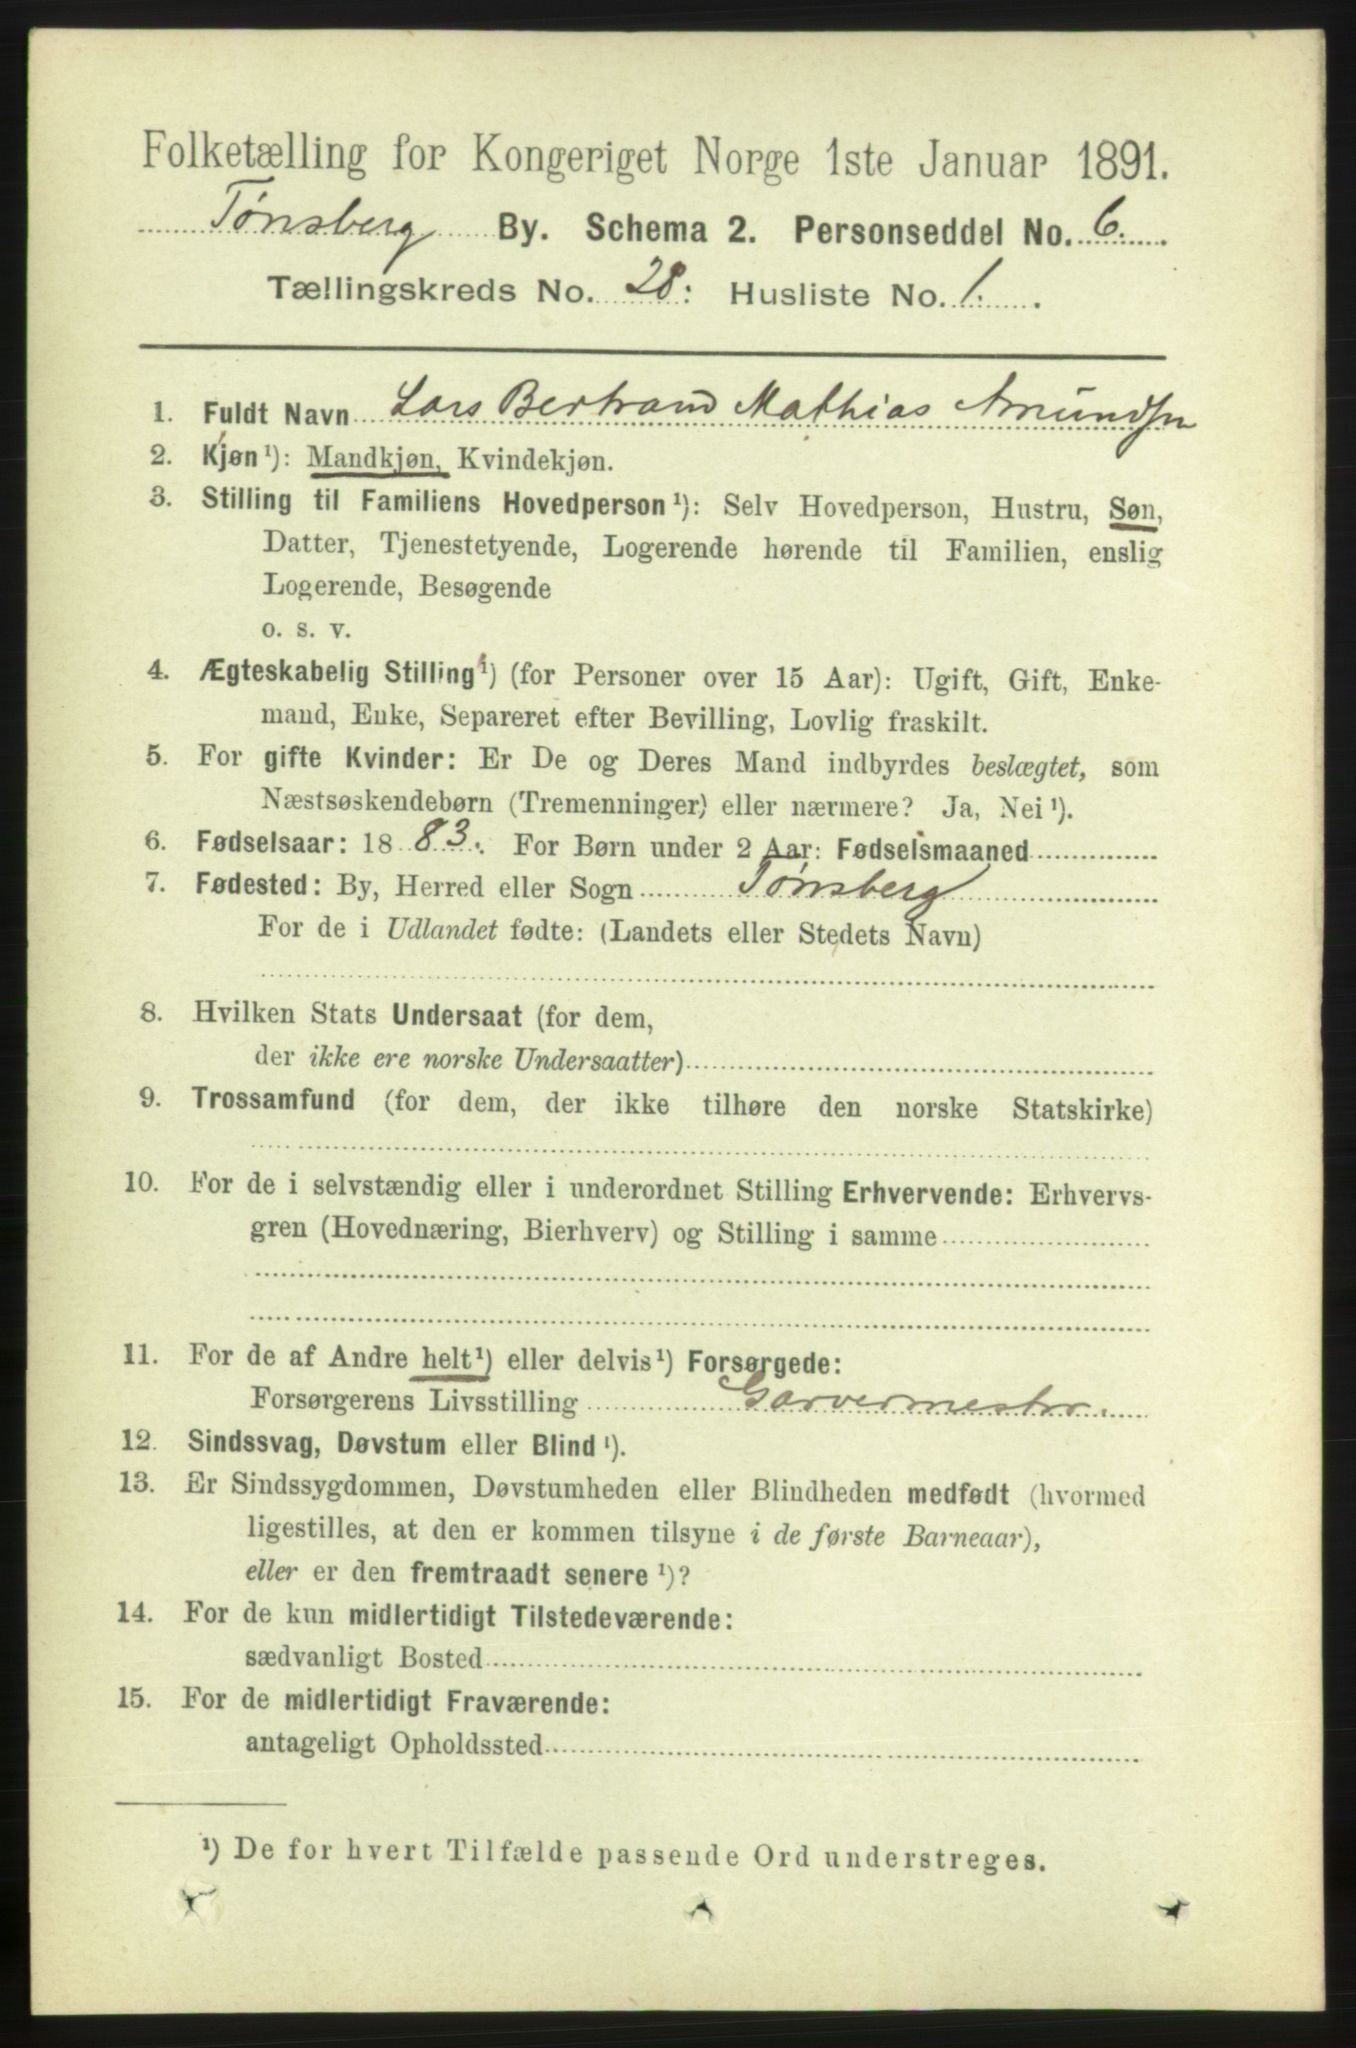 Folketælling for Kongeriget Norge 1ste Januar 1891.
Tønsberg By. Schema 2. Personseddel No. 6.
Tællingskreds No. 28. Husliste No. 1.
1. Fuldt Navn Lars Bertrand Mathias Amundsen
2. Kjøn ¹): Mandkjøn, Kvindekjøn.
3. Stilling til Familiens Hovedperson ¹): Selv Hovedperson, Hustru, Søn,
Datter, Tjenestetyende, Logerende hørende til Familien, enslig
Logerende, Besøgende
o. s. v.
4. Ægteskabelig Stilling ¹) (for Personer over 15 Aar): Ugift, Gift, Enke-
mand, Enke, Separeret efter Bevilling, Lovlig fraskilt.
5. For gifte Kvinder: Er De og Deres Mand indbyrdes beslægtet, som
Næstsøskendebørn (Tremenninger) eller nærmere? Ja, Nei ¹).
6. Fødselsaar: 1883. For Børn under 2 Aar: Fødselsmaaned
7. Fødested: By, Herred eller Sogn Tønsberg
For de i Udlandet fødte: (Landets eller Stedets Navn)
8. Hvilken Stats Undersaat (for dem,
der ikke ere norske Undersaatter)
9. Trossamfund (for dem, der ikke tilhøre den norske Statskirke)
10. For de i selvstændig eller i underordnet Stilling Erhvervende: Erhvervs-
gren (Hovednæring, Bierhverv) og Stilling i samme
11. For de af Andre helt ¹) eller delvis ¹) Forsørgede:
Forsørgerens Livsstilling Garvermester.
12. Sindssvag, Døvstum eller Blind ¹).
13. Er Sindssygdommen, Døvstumheden eller Blindheden medfødt (hvormed
ligestilles, at den er kommen tilsyne i de første Barneaar),
eller er den fremtraadt senere ¹)?
14. For de kun midlertidigt Tilstedeværende:
sædvanligt Bosted
15. For de midlertidigt Fraværende:
antageligt Opholdssted
¹) De for hvert Tilfælde passende Ord understreges.